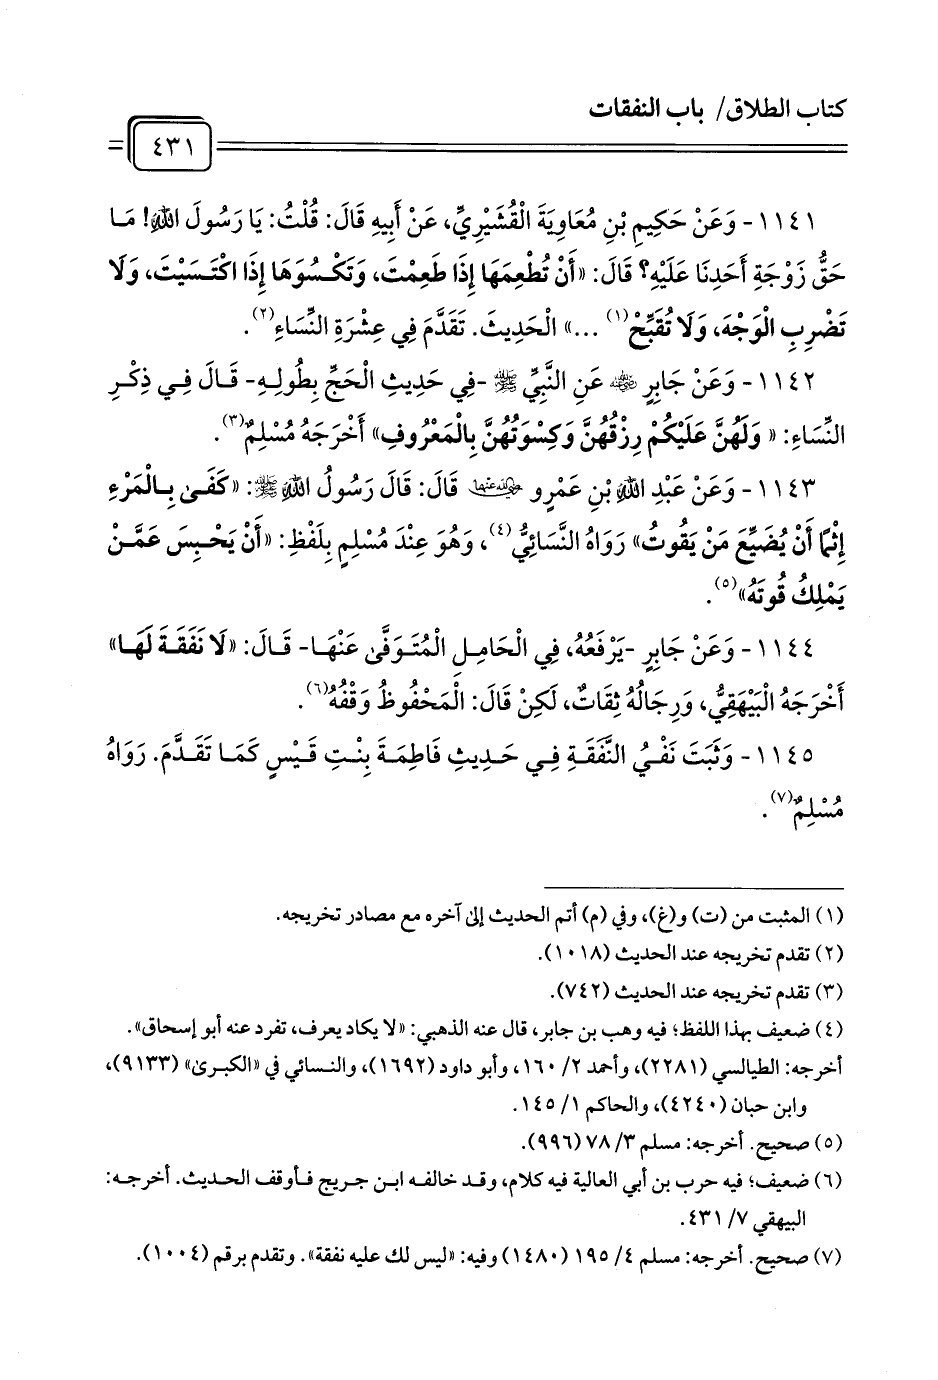 كتاب الطلاق/ باب النفقات
٤٣١
١١٤١- وَعَنْ حَكِيمِ بْنِ مُعَاوِيَةَ الْقُشَيْرِيِّ، عَنْ أَبِيهِ قَالَ: قُلْتُ: يَا رَسُولَ اللهِ! مَا
حَقُّ زَوْجَةِ أَحَدِنَا عَلَيْهِ؟ قَالَ: «أَنْ تُطْعِمَهَا إِذَا طَعِمْتَ، وَتَكْسُوَهَا إِذَا اكْتَسَيْتَ، وَلَا
تَضْرِبِ الْوَجْهَ، وَلَا تُقَبِّحْ(١) ...» الْحَدِيثَ. تَقَدَّمَ فِي عِشْرَةِ النِّسَاءِ(٢).
١١٤٢- وَعَنْ جَابِرٍ ﵁ عَنِ النَّبِيِّ ﷺ -فِي حَدِيثِ الْحَجِّ بِطُولِهِ- قَالَ فِي ذِكْرِ
النِّسَاءِ: « وَلَهُنَّ عَلَيْكُمْ رِزْقُهُنَّ وَكِسْوَتُهُنَّ بِالْمَعْرُوفِ» أَخْرَجَهُ مُسْلِمٌ(٣).
١١٤٣- وَعَنْ عَبْدِ اللهِ بْنِ عَمْرٍو ﵄ قَالَ: قَالَ رَسُولُ اللهِ ﷺ: «كَفَىٰ بِالْمَرْءِ
إِثْمًا أَنْ يُضَيِّعَ مَنْ يَقُوتُ» رَوَاهُ النَّسَائِيُّ(٤)، وَهُوَ عِنْدَ مُسْلِمٍ بِلَفْظِ: «أَنْ يَحْبِسَ عَمَّنْ
يَمْلِكُ قُوتَهُ»(٥).
١١٤٤- وَعَنْ جَابِرٍ -يَرْفَعُهُ، فِي الْحَامِلِ الْمُتَوَفَّىٰ عَنْهَا- قَالَ: «لَا نَفَقَةَ لَهَا»
أَخْرَجَهُ الْبَيْهَقِيُّ، وَرِجَالُهُ ثِقَاتٌ، لَكِنْ قَالَ: الْمَحْفُوظُ وَقْفُهُ(٦).
١١٤٥- وَثَبَتَ نَفْيُ النَّفَقَةِ فِي حَدِيثِ فَاطِمَةَ بِنْتِ قَيْسٍ كَمَا تَقَدَّمَ. رَوَاهُ
مُسْلِمٌ(٧).
(١) المثبت من (ت) و(غ)، وفي (م) أتم الحديث إلىٰ آخره مع مصادر تخريجه.
(٢) تقدم تخريجه عند الحديث (١٠١٨).
(٣) تقدم تخريجه عند الحديث (٧٤٢).
(٤) ضعيف بهذا اللفظ؛ فيه وهب بن جابر، قال عنه الذهبي: «لا يكاد يعرف، تفرد عنه أبو إسحاق».
أخرجه: الطيالسي (٢٢٨١)، وأحمد ٢/ ١٦٠، وأبو داود (١٦٩٢)، والنسائي في «الكبرىٰ» (٩١٣٣)،
وابن حبان (٤٢٤٠)، والحاكم ١/ ١٤٥.
(٥) صحيح. أخرجه: مسلم ٣/ ٧٨ (٩٩٦).
(٦) ضعيف؛ فيه حرب بن أبي العالية فيه كلام، وقد خالفه ابن جريج فأوقف الحديث. أخرجه:
البيهقي ٧/ ٤٣١.
(٧) صحيح. أخرجه: مسلم ٤/ ١٩٥ (١٤٨٠) وفيه: «ليس لك عليه نفقة». وتقدم برقم (١٠٠٤).